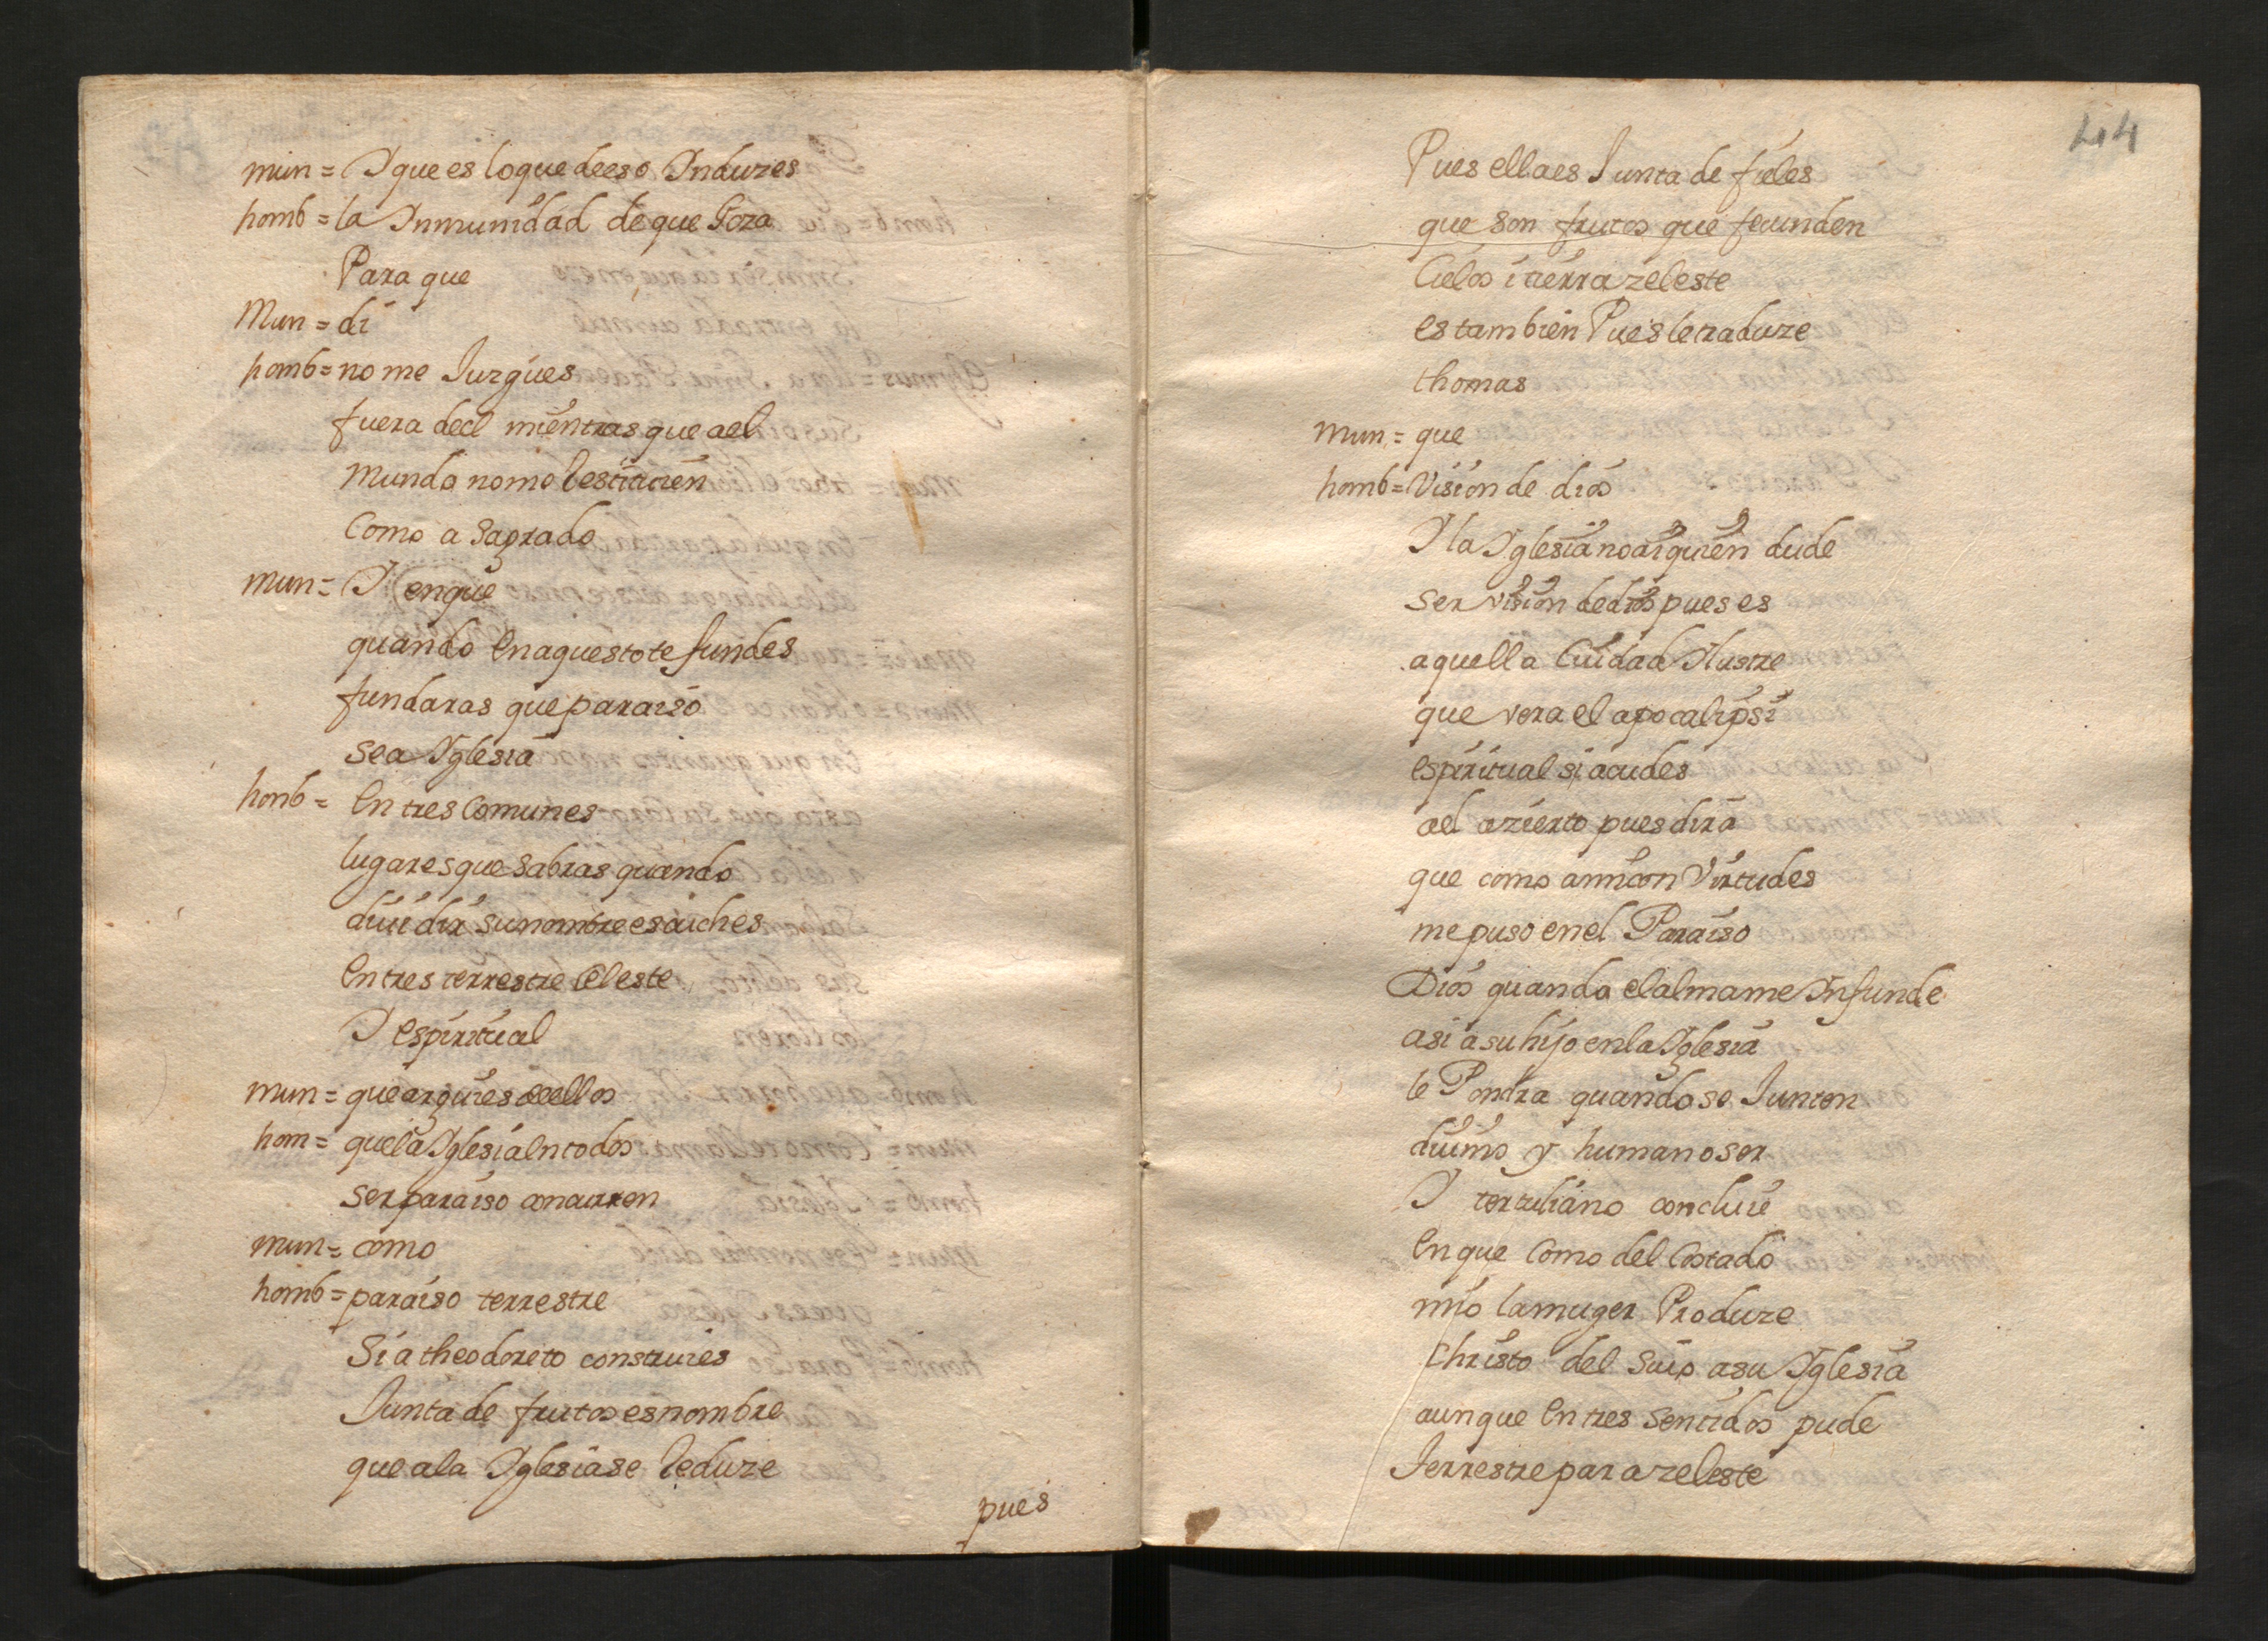 mun = I que es lo que de eso Induzes
homb = la Inmunidad de que Goza
Para que
Mun = di
homb = no me Iuzgues
fuera de el mientras que a el
mundo no me Restituien
Como a Sagrado
mun = I en que
quando En aquesto te fundes
fundaras que paraiso
sea Iglesia
honb = En tres Comunes
lugares que sabras quando
diuidir su nombre escuches
En tres terrestre Celeste
I espiritual
mun = que arguies de ellos
hom = que la Iglesia En todos
ser paraiso concurren
mun = como
homb = paraiso terrestre
Si a theodoreto construies
Iunta de frutos es nombre
que a la Iglesia se Reduze
pues
44
Pues ella es Iunta de fieles
que son frutos que fecunden
Cielos i tierra zeleste
es tambien Pues le traduze
thomas
mun = que
homb = Vision de dios
I la Iglesia no ai quien dude
ser vision de dios pues es
aquella Ciudad Ilustre
que vera el apocalipsi
espiritual si acudes
a el azierto pues dira
que como a mi con Virtudes
me puso en el Paraiso
Dios quando el alma me Infunde
asi a su hijo en la Iglesia
le Pondra quando se Iunten
diuino y humano ser
I tertuliano concluie
En que Como del Costado
mio la muger Produze
Christo del suio a su Iglesia
aunque En tres sentidos pude
Terrestre para zeleste